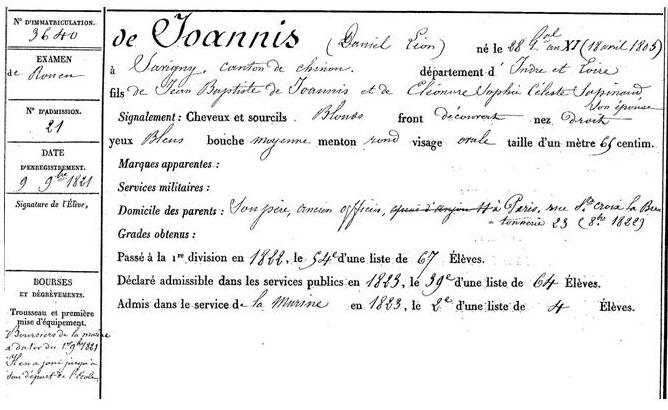 N° D'IMMATRICULATION.
3640
EXAMEN
de Rouen
N° D'ADMISSION.
21
DATE
D'ENREGISTREMENT.
9 9bre 1821
Signature de l'Élève.
BOURSES
ET DÉGRÈVEMENTS.
Trousseau et première
mise d'équipement.
Boursiers de la marine
a dater du 1er 9bre 1821
Il en a joui jusqu'à
son départ de l'école
de Joannis (Daniel Léon) né le 28 gal an XI (18 avril 1803)
à Savigny, canton de chinon. département d'Indre et Loire
fils de Jean Baptiste de Joannis et de Eléonore Sophie Céleste Sapinaud
son épouse
Signalement: Cheveux et sourcils Blonds front découvert nez Droit
yeux Bleus bouche moyenne menton rond visage ovale taille d'un mètre 65 centim.
Marques apparentes :
Services militaires :
Domicile des parents : Son père, ancien officier, quai d'Anjou 11 à Paris, rue Ste croix la Bre
tonnerie 23 (8bre 1822)
Grades obtenus :
Passé à la 1re division en 1822, le 54e d'une liste de 67 Élèves.
Déclaré admissible dans les services publics en 1823, le 39e d'une liste de 64 Élèves.
Admis dans le service de la Marine en 1823, le 2e d'une liste de 4 Élèves.